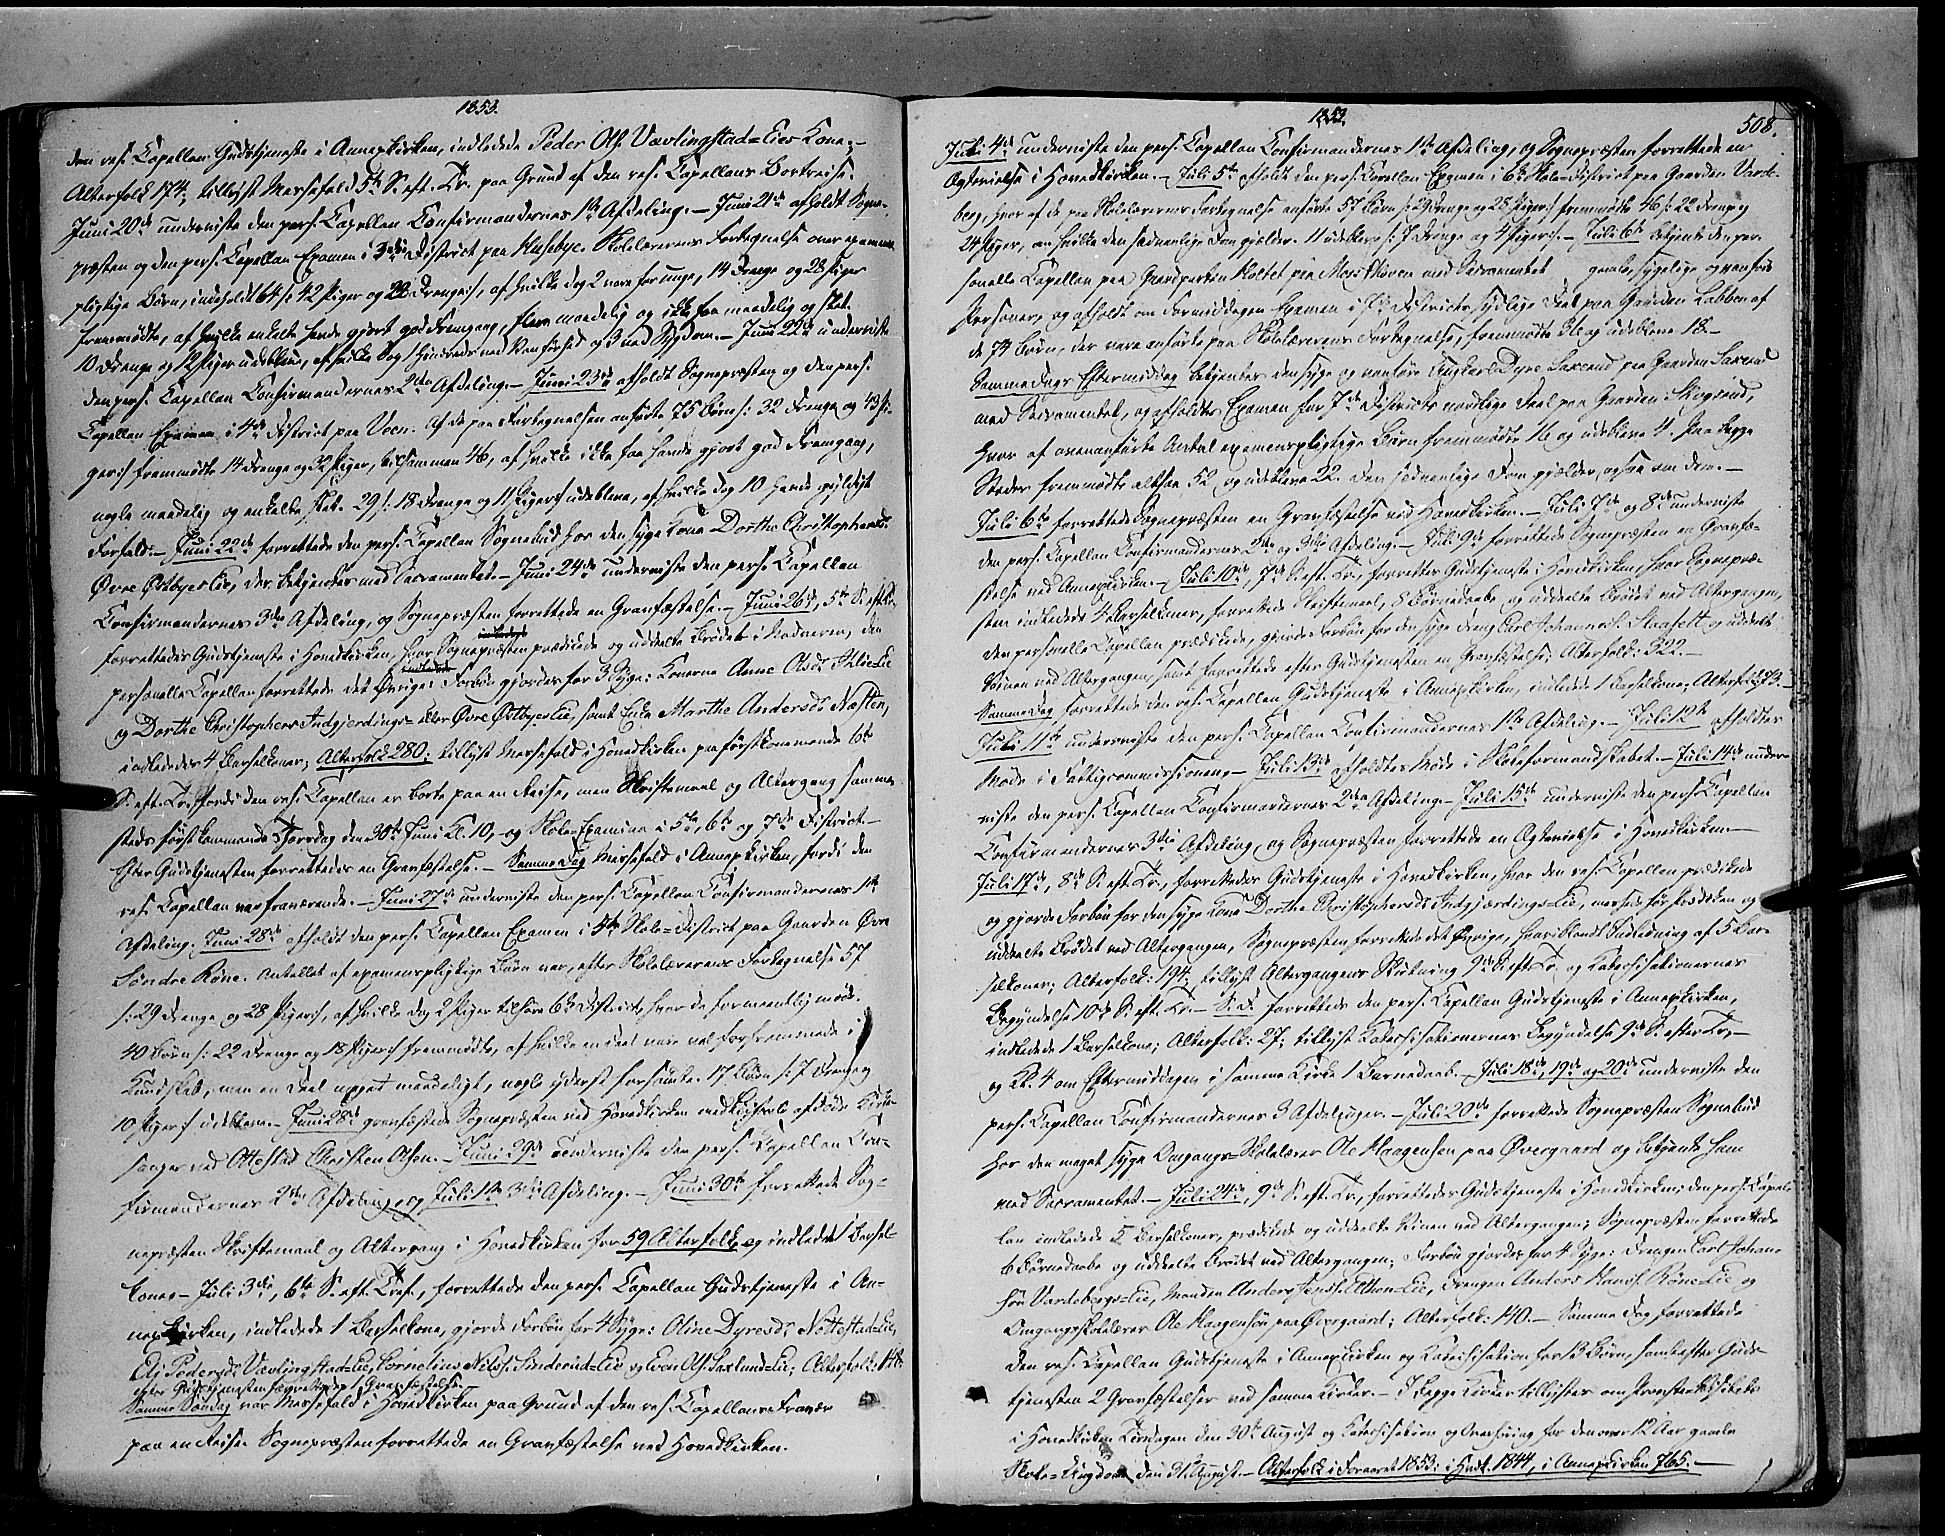 1853.
den res. Capellan Gudstjeneste i Annexkirken, indledede Peder Ols. Vævlingstad=Eies Kone.-
Alterfolk 174; tillyst Messefald 5te S. eft. Tr. paa Grund af den res. Capellans Bortreise.
Juni 20de underviste den pers. Capellan Confirmandernes 1ste Afdeling.- Juni 21de afholdt Sogne-
præsten og den pers. Capellan Examen i 3die District paa Huseby. Skolelærerens Fortegnelse over examens-
pligtige Børn, indeholdt 64 /: 42 Piger og 22 Drenge:/, af hvilke dog 2 vare for unge, 14 Drenge og 28 Piger
fremmødte, af hvilke enkelte havde gjort god Fremgang, flere maadelig og ikke faa maadelig og slet.
10 Drenge og 12 Piger udebleve, af hvilke dog 1 hindredes ved Vanførhed og 3 ved Sygdom.- Juni 22de underviste
den pers. Capellan Confirmandernes 2den Afdeling.- Juni 23de afholdt Sognepræsten og den pers.
Capellan Examen i 4de District paa Voen. Af de paa Fortegnelsen anførte 75 Børn /: 32 Drenge og 43 Pi-
ger:/ fremmødte 14 Drenge og 32 Piger, tilsammen 46, af hvilke ikke faa havde gjort god Fremgang,
nogle maadelig og enkelte slet. 29 /: 18 Drenge og 11 Piger:/ udebleve, af hvilke dog 10 havde gyldigt
Forfald.- Juni 22de forrettede den pers. Capellan Sognebud hos den syge Kone Dorthe Christophersd.
Øvre Østbyes Eie, der betjentes med Sacramentet.- Juni 24de underviste den pers. Capellan
Confirmandernes 3die Afdeling, og Sognepræsten forrettede en Gravfæstelse.- Juni 26de, 5te S. eft. Tr.
forrettedes Gudstjeneste i Hovedkirken, hvor Sognepræsten prædikede og uddelte Brødet i Nadveren, den
personelle Capellan forrettede det Øvrige: Forbøn gjordes for 3 Syge: Konerne Anne Olsd.
og Dorthe Christophers. Indgjerdings- eller Øvre Østbyes Eie, samt Enke Marthe Andersd. Næsten,
indlededes 4 Barselkoner; Alterfolk 280; tillyst Messefald i Hovedkirken paa førstkommende 6te
S. eft. Tr. fordi den res. Capellan er borte paa en Reise, men Skriftemaal og Altergang samme-
steds førstkommende Torsdag den 30te Juni Kl. 10,- og Skole-Examina i 5te, 6te og 7de District.-
Efter Gudstjenesten forrettedes en Gravfæstelse.- Samme Dag Messefald i Annexkirken, fordi den
res. Capellan var fraværende.- Juni 27de underviste den pers. Capellan Confirmandernes 1ste
Afdeling. Juni 28de afholdt den pers. Capellan Examen i 5te Skole=District paa Gaarden Øvre
Søndre Røne. Antallet af examenspligtige Børn var, efter Skolelærerens Fortegnelse 57
/: 29 Drenge og 28 Piger:/, af hvilke dog 2 Piger tilhøre 6te District, hvor de formeentlig møde.
40 Børn /: 22 Drenge og 18 Piger:/ fremmødte, af hvilke en deel vare vel forfremmede i
Kundskab, men en Deel meget maadeligt, nogle yderst forsømte. 17 Børn /: 7 Drenge og
10 Piger:/ udebleve.- Juni 28de gravfæstede Sognepræsten ved Hovedkirken afdøde Kirke-
sanger ved Ottestad Christen Olsen.- Juni 29de underviste den pers. Capellan Con-
firmandernes 2den Afdeling, og Juli 1ste 3die Afdeling.- Juni 30te forrettede Sog-
nepræsten Skriftemaal og Altergang i Hovedkirken for 59 Alterfolk og indledede 1 Barsel-
kone.- Juli 3die, 6te S. eft. Tref., forrettede den pers. Capellan Gudstjeneste i An-
nexkirken, indledede 1 Barselkone, gjorde Forbøn for 4 Syge: Oline Dyresd. Nøttestad=Eie,
Eli Pedersd. Vævlingstad=Eie, Cornelius Nils. Sinderud=Eie og Even Ols. Saxlund=Eie; Alterfolk:
efter Gudstjenesten forrettedes 1 Gravfæstelse.
Samme Søndag var Messefald i Hovedkirken paa Grund af den res. Capellans Fravær
paa en Reise. Sognepræsten forrettede en Gravfæstelse ved Hovedkirken.
1853.
508.
Juli 4de underviste den pers. Capellan Confirmandernes 1ste Afdeling, og Sognepræsten forrettede en
Ægtevielse i Hovedkirken.- Juli 5te afholdt den pers. Capellan Examen i 6te Skole=District paa Gaarden Varde-
berg, hvor af de paa Skolelærerens Fortegnelse anførte 57 Børn /: 29 Drenge og 28 Piger:/ fremmødte 46 /: 22 Drenge og
24 Piger, om hvilke den sædvanlige Dom gjelder. 11 udebleve /: 7 Drenge og 4 Piger:/.- Juli 6te betjente den per-
sonelle Capellan paa Gaardparten Koltet paa Moestuen med Sacramentet gamle, sygelige og vanføre
Personer, og afholdt om Formiddagen Examen i 7de Districts sydlige Deel paa Gaarden Labben af
de 74 Børn, der vare anførte paa Skolelærerens Fortegnelse, fremmødte 36 og udebleve 18.-
Samme Dags Eftermiddag betjentes den syge og vanføre Ungkarl Dyre Saxlund paa Gaarden Saxlund
med Sacramentet, og afholdtes Examen for 7de Districts nordlige Deel paa Gaarden Skogsrud,
hvor af ovenanførte Antal examenspligtige Børn fremmødte 16 og udebleve 4. Paa begge
Steder fremmødte altsaa 52 og udebleve 22. Den sædvanlige Dom gjelder ogsaa om dem.-
Juli 6te forrettede Sognepræsten en Gravfæstelse ved Hovedkirken.- Juli 7de og 8de underviste
den pers. Capellan Confirmandernes 2den og 3die Afdeling.- Juli 9de forrettede Sognepræsten en Gravfæ-
stelse ved Annexkirken.- Juli 10de, 7de S. eft. Tr., forrettes Gudstjeneste i Hovedkirken, hvor Sognepræ-
sten indledede 4 Barselkoner, forrettede Skriftemaal, 8 Børnedaabe og uddelte Brødet ved Altergangen,
den personelle Capellan prædikede, gjorde Forbøn for den syge Dreng Carl Johannes. og uddelte
Vinen ved Altergangen, samt forrettede efter Gudstjenesten en Gravfæstelse; Alterfolk: 322.-
Samme Dag forrettede den res. Capellan Gudstjeneste i Annexkirken, indledede 1 Barselkone; Alterfolk: 73.-
Juli 11te underviste den pers. Capellan Confirmandernes 1ste Afdeling.- Juli 12te afholdtes
Møde i Fattigcommissionen.- Juli 13de afholdtes Møde i Skoleformandskabet.- Juli 14de under-
viste den pers. Capellan Confirmandernes 2den Afdeling.- Juli 15de underviste den pers. Capellan
Confirmandernes 3die Afdeling, og Sognepræsten forrettede en Ægtevielse i Hovedkirken.-
Juli 17de, 8de S. eft. Tr., forrettedes Gudstjeneste i Hovedkirken, hvor den res. Capellan prædikede
og gjorde Forbøn for den syge Kone Dorthe Christophersd. Indgjærdings=Eie, messede før Prædiken og
uddelte Brødet ved Altergangen, Sognepræsten forrettede det Øvrige, hvoriblandt Indledning af 5 Bar-
selkoner; Alterfolk: 194; tillyst Altergangens Slutning 9de S. eft. Tr. og Katechisationernes
Begyndelse 10de S. eft. Tr.- S. D. forrettede den pers. Capellan Gudstjeneste i Annexkirken,
indledede 1 Barselkone; Alterfolk: 27; tillyst Katechisationernes Begyndelse 9de S. efter Tr.-
og Kl. 4 om Eftermiddagen i samme Kirke 1 Barnedaab.- Juli 18de, 19de og 20de underviste den
pers. Capellan Confirmandernes 3 Afdelinger.- Juli 20de forrettede Sognepræsten Sognebud
hos den meget syge Omgangs=Skolelærer Ole Haagensen paa Øvergaard og betjente ham
med Sacramentet.- Juli 24de, 9de S. eft. Tr., forrettedes Gudstjeneste i Hovedkirken; den pers. Capel-
lan indledede 5 Barselkoner, prædikede og uddelte Vinen ved Altergangen; Sognepræsten forrettede
6 Børnedaabe og uddelte Brødet ved Altergangen; Forbøn gjordes for 4 Syge: Drengen Carl Johann-
sen Vardebergs=Eie, Manden Anders Eie, Drengen Anders Hans. Røne=Eie og
Omgangsskolelærer Ole Haagensen paa Øvergaard; Alterfolk: 140.- Samme Dag forrettede
den res. Capellan Gudstjeneste i Annexkirken og Katechisation for Børn, samt efter Guds-
tjenesten 2 Gravfæstelser ved samme Kirke.- I begge Kirker tillystes om Provstevisitats
i Hovedkirken Tirsdagen den 30te August og Katechisation og Overhøring for den over 12 Aar gamle
Skole=Ungdom den 31te August.- Alterfolk i Foraaret 1853: i Hvdk. 1844, i Annexkirken 765.-